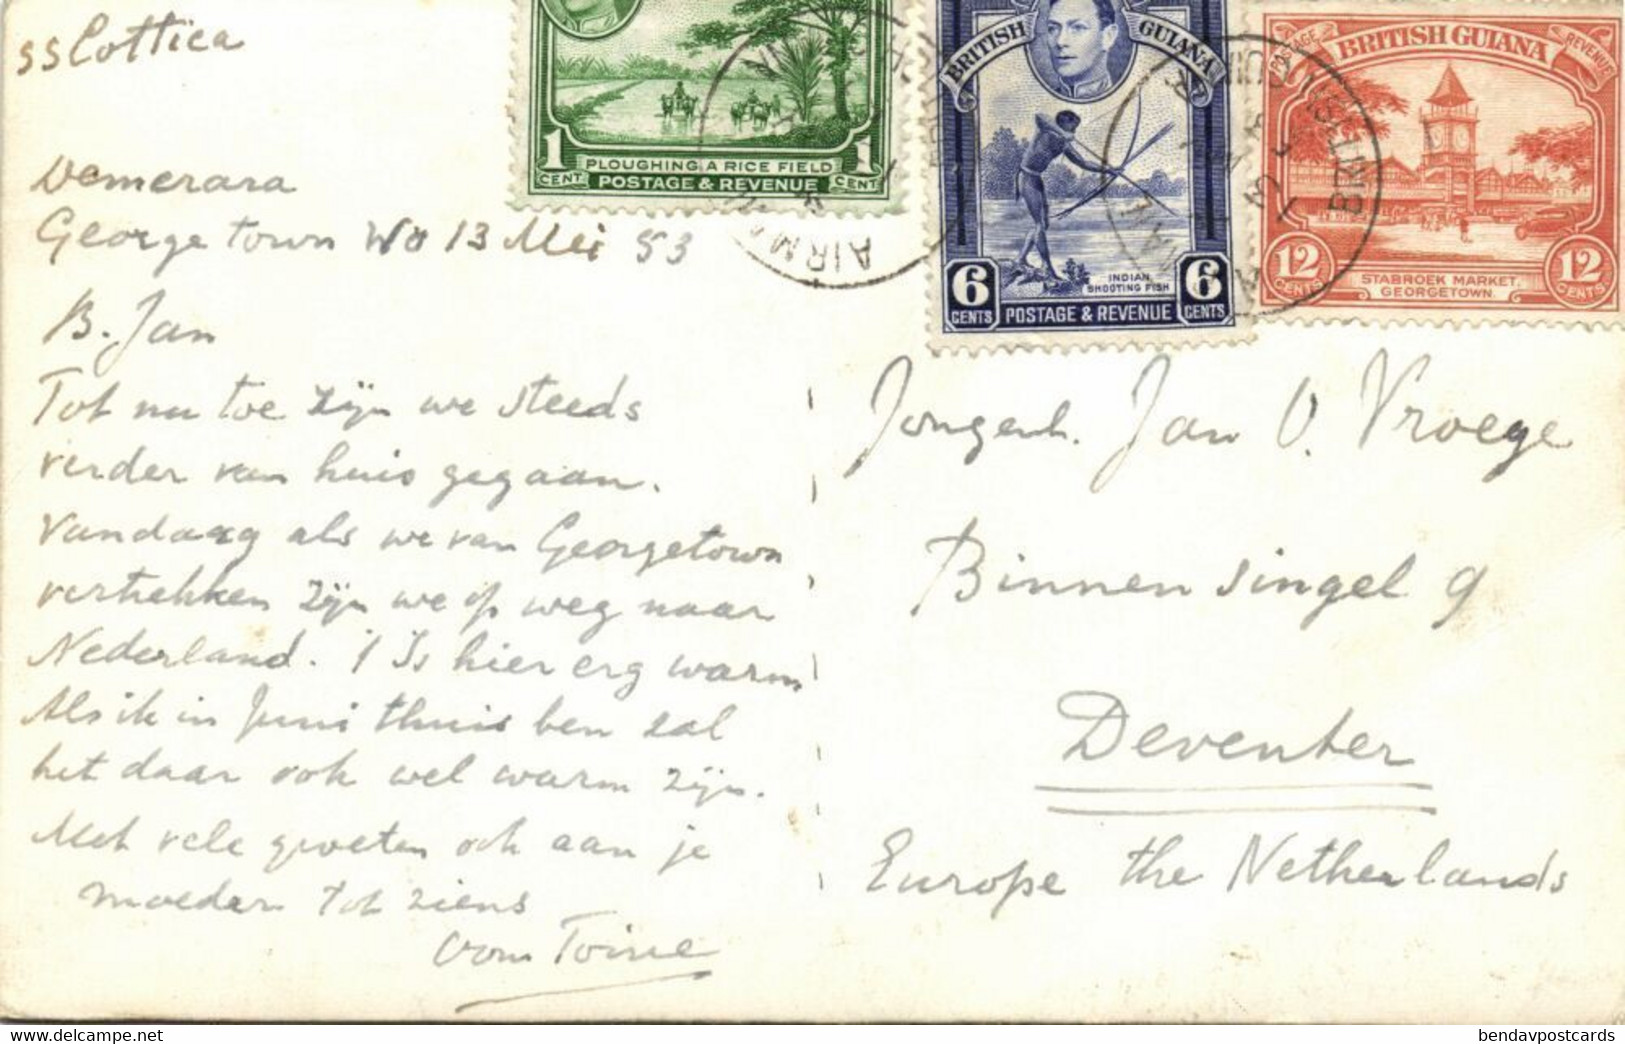 ss Cottica
Demerara
Georgetown Wo 13 Mei 53
B. Jan
Tot nu toe zijn we steeds
verder van huis gegaan.
Vandaag als we van Georgetown
vertrekken zijn we op weg naar
Nederland. 't Is hier erg warm
Als ik in Juni thuis ben zal
het daar ook wel warm zijn.
Met vele groeten ook aan je
moeder tot ziens
Oom Toine
1 CENT PLOUGHING A RICE FIELD 1 CENT
POSTAGE & REVENUE
BRITISH GUIANA
6 CENTS INDIAN SHOOTING FISH 6 CENTS
POSTAGE & REVENUE
POSTAGE BRITISH GUIANA REVENUE
12 CENTS STABROEK MARKET, GEORGETOWN. 12 CENTS
AIRMAIL
BRITISH GUIANA
Jongenh. Jan V. Vroege
Binnensingel 9
Deventer
Europe the Netherlands
bendavpostcards